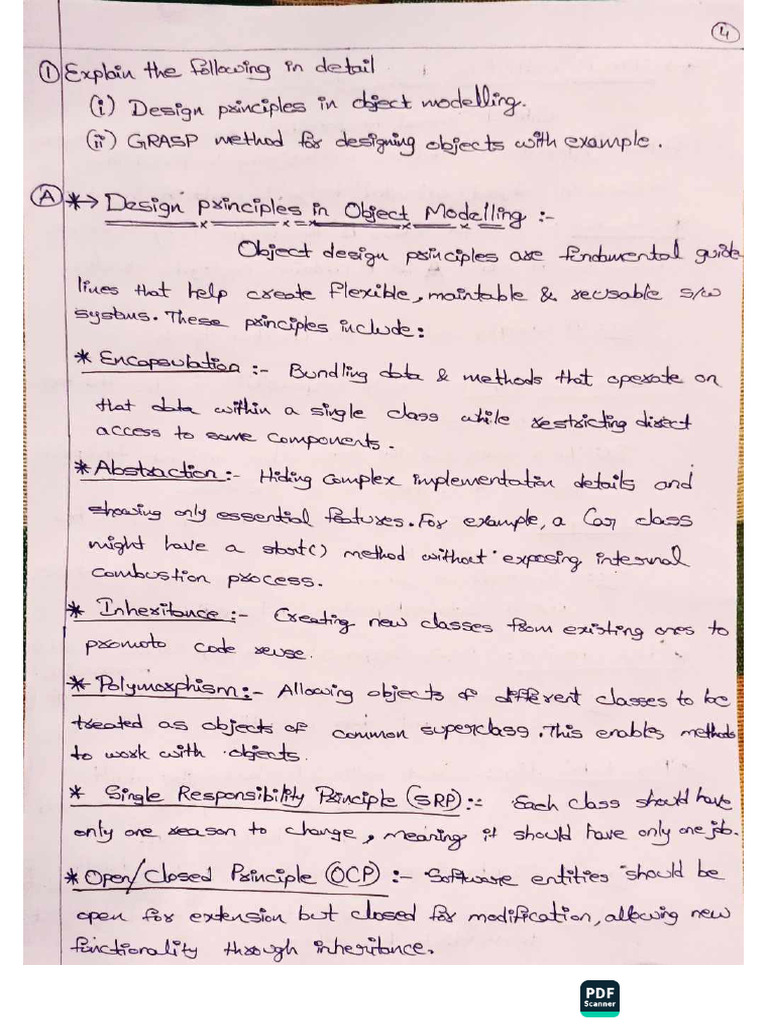 4
① Explain the following in detail
(i) Design principles in object modelling.
(ii) GRASP method for designing objects with example.
Ⓐ *→ Design principles in Object Modelling :-
Object design principles are fendumental guide
lines that help create flexible, maintable & reusable s/w
systbus. These principles include:
* Encapsulation :- Bundling data & methods that operate on
that data within a single class while restricting direct
access to some components.
* Abstraction :- Hiding complex implementation details and
showing only essential features. For example, a Car class
might have a start() method without exposing internal
combustion process.
* Inheritance :- Creating new classes from existing ones to
promoto code reuse.
* Polymorphism :- Allowing objects of different classes to be
treated as objects of common superclass. This enables methods
to work with objects.
* Single Responsibility Principle (SRP) :- Each class should have
only one reason to change, meaning it should have only one job.
* Open/Closed Principle (OCP) :- Software entities should be
open for extension but closed for modification, allowing new
functionality through inheritance.
PDF
Scanner